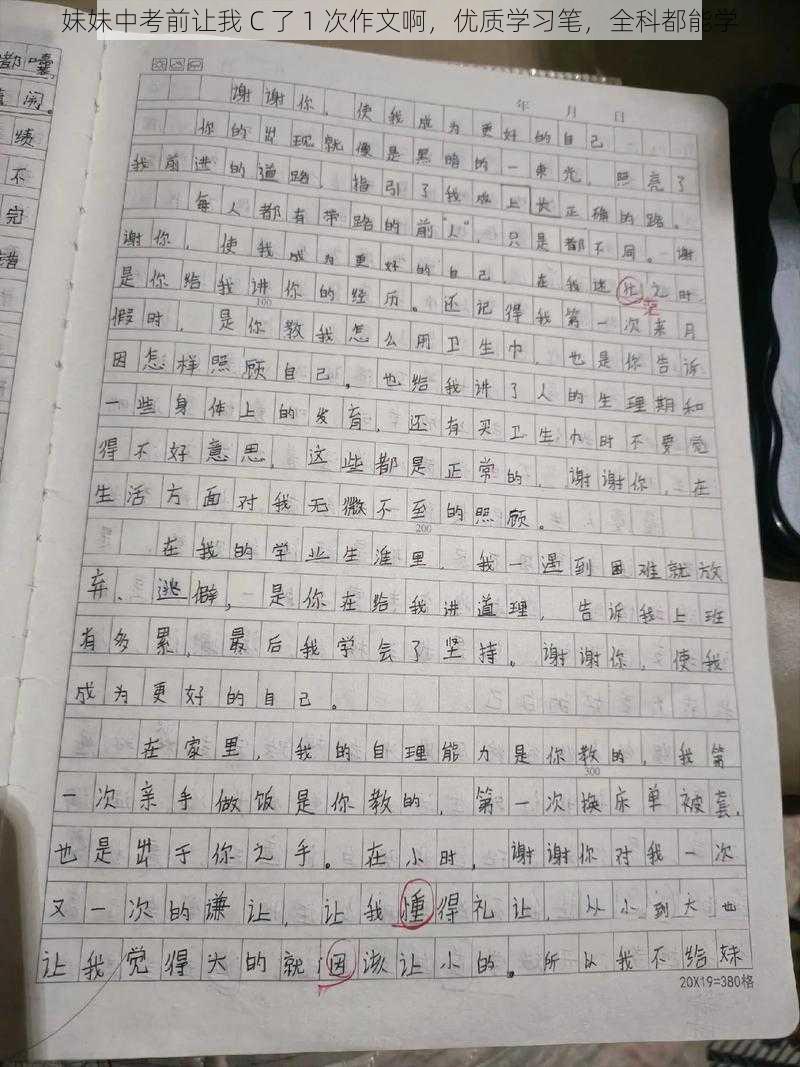 妹妹中考前让我 C 了 1 次作文啊，优质学习笔，全科都能学
都嚷
闹。
绩
不
完
错
年 月 日
谢谢你，使我成为更好的自己
你的出现就像是黑暗的一束光，照亮了
我前进的道路，指引了我成上长正确的路。
每人都有带路的前"人"，只是都不同。谢
谢你，使我成为更好的自己，在我迷仩之时，
茫
是你给我讲你的经历。还记得我第一次来月
100
假时，是你教我怎么用卫生巾，也是你告诉
因怎样照顾自己。也给我讲了人的生理期和
一些身体上的发育，还有买卫生巾时不要觉
得不好意思，这些都是正常的，谢谢你，在
生活方面对我无微不至的照顾。
200
在我的学业生涯里，我一遇到困难就放
弃、逃僻，是你在给我讲道理，告诉我上班
有多累，最后我学会了坚持。谢谢你，使我
成为更好的自己。
在家里，我的自理能力是你教的，我第
300
一次亲手做饭是你教的，第一次换床单被套，
也是出于你之手。在小时，谢谢你对我一次
又一次的谦让，让我懂得礼让，从小到大也
让我觉得大的就因该让小的。所以我不给妹
20X19=380格